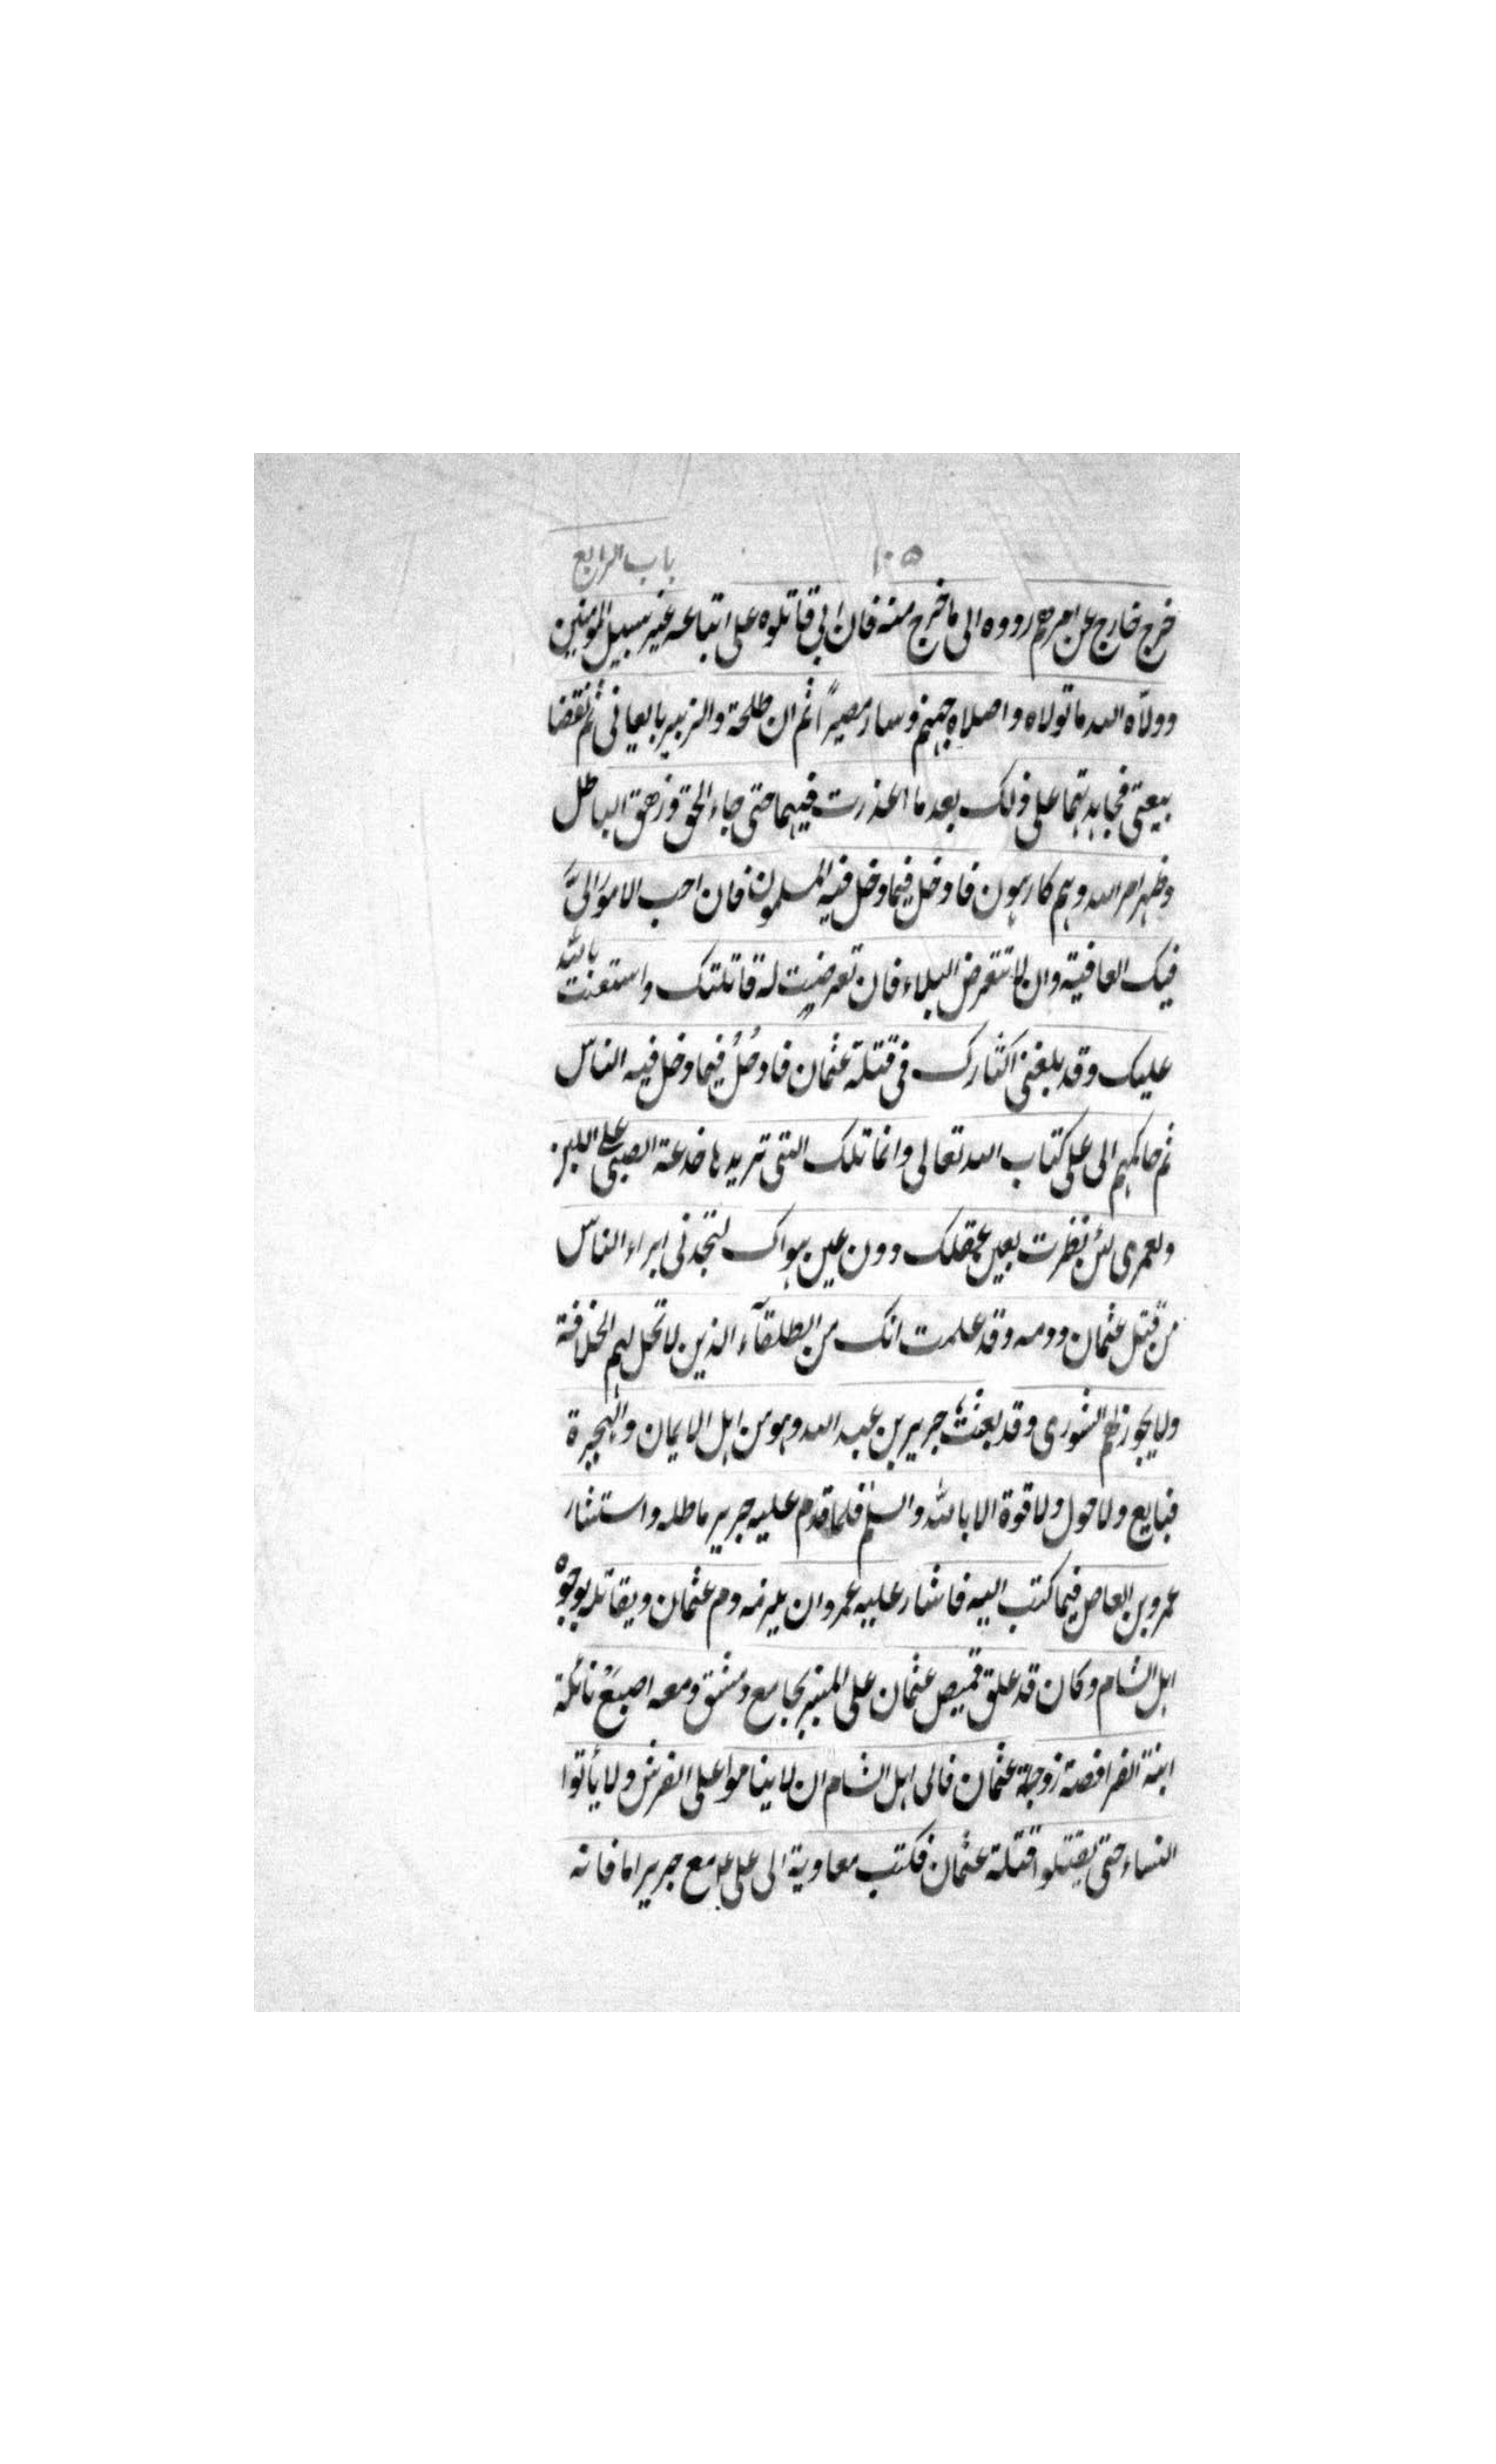 ١٠٥ باب الرابع
خرج خارج عن امرهم ردوه الى ما خرج منه فان ابى قاتلوه على اتباعه غير سبيل المؤمنين
وولّاه الله ما تولاه واصلاه جهنم وساء مصيراً ثم ان طلحة والزبير بايعانى ثم نقضا
بيعتى فجاهدتهما على ذلك بعد ما اعذرت فيهما حتى جاء الحق وزهق الباطل
وظهر امر الله وهم كارهون فادخل فيما دخل فيه المسلمون فان احب الامور الىَّ
فيك العافية وان لا تتعرض البلاء فان تعرضت له قاتلتك واستعنت بالله
عليك وقد بلغنى اكثارك فى قتلة عثمان فادخُلْ فيما دخل فيه الناس
ثم حاكمهم الى على كتاب الله تعالى وانما تلك التى تريدها خدعة الصبى على اللبن
ولعمرى لئن نظرت بعين عقلك دون عين هواك لتجدنى ابراء الناس
من قتل عثمان ودمه وقد علمت انك من الطلقآء الذين لا تحل لهم الخلافة
ولا يجوز لهم الشورى وقد بعثت جرير بن عبد الله وهو من اهل الايمان والهجرة
فبايع ولا حول ولا قوة الا بالله والسلم فلما قدم عليه جرير ماطله واستشار
عمرو بن العاص فيما كتب اليه فاشار عليه عمرو ان يلزمه دم عثمان ويقاتله بوجوه
اهل الشام وكان قد علق قميص عثمان على المنبر بجامع دمشق ومعه اصبع نائلة
ابنة الفرافصة زوجة عثمان فالى اهل الشام ان لا يناموا على الفرش ولا يأتوا
النساء حتى يقتلوا قتلة عثمان فكتب معاوية الى على ع مع جرير اما فانه